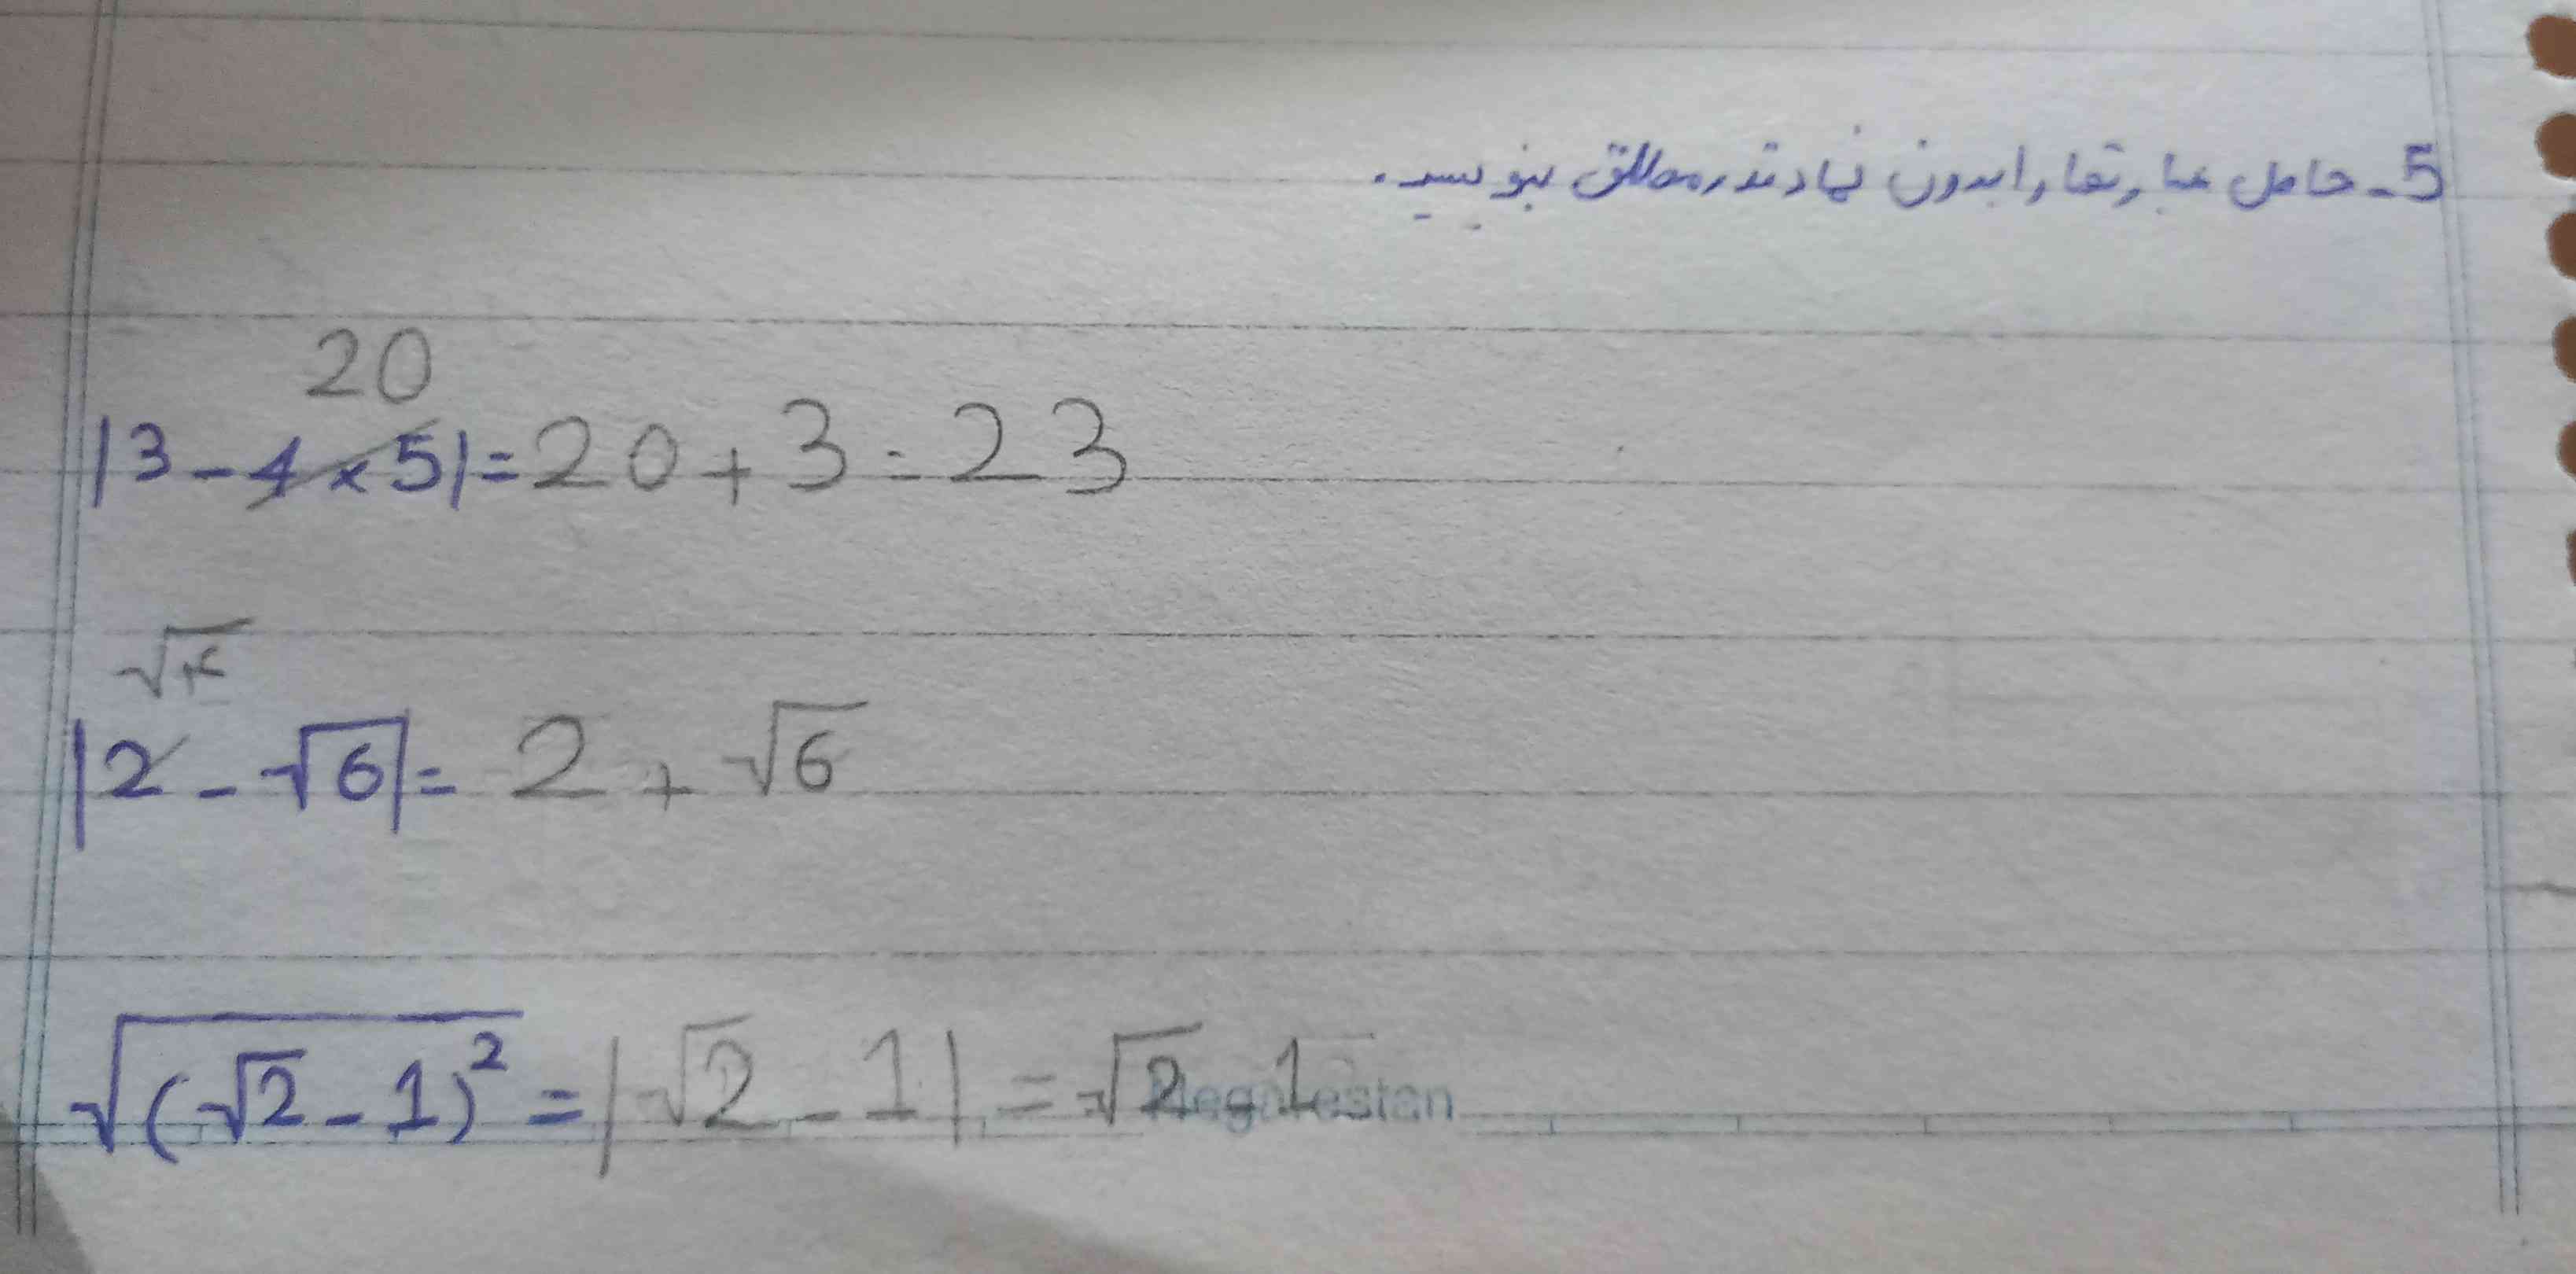 5- حاصل عبارتها را بدون نماد قدر مطلق بنویسید.
20
|3 - 4 × 5| = 20 + 3 = 23
√۴
|2 - √6| = 2 + √6
√(√2 - 1)² = |√2 - 1| = √2 - 1